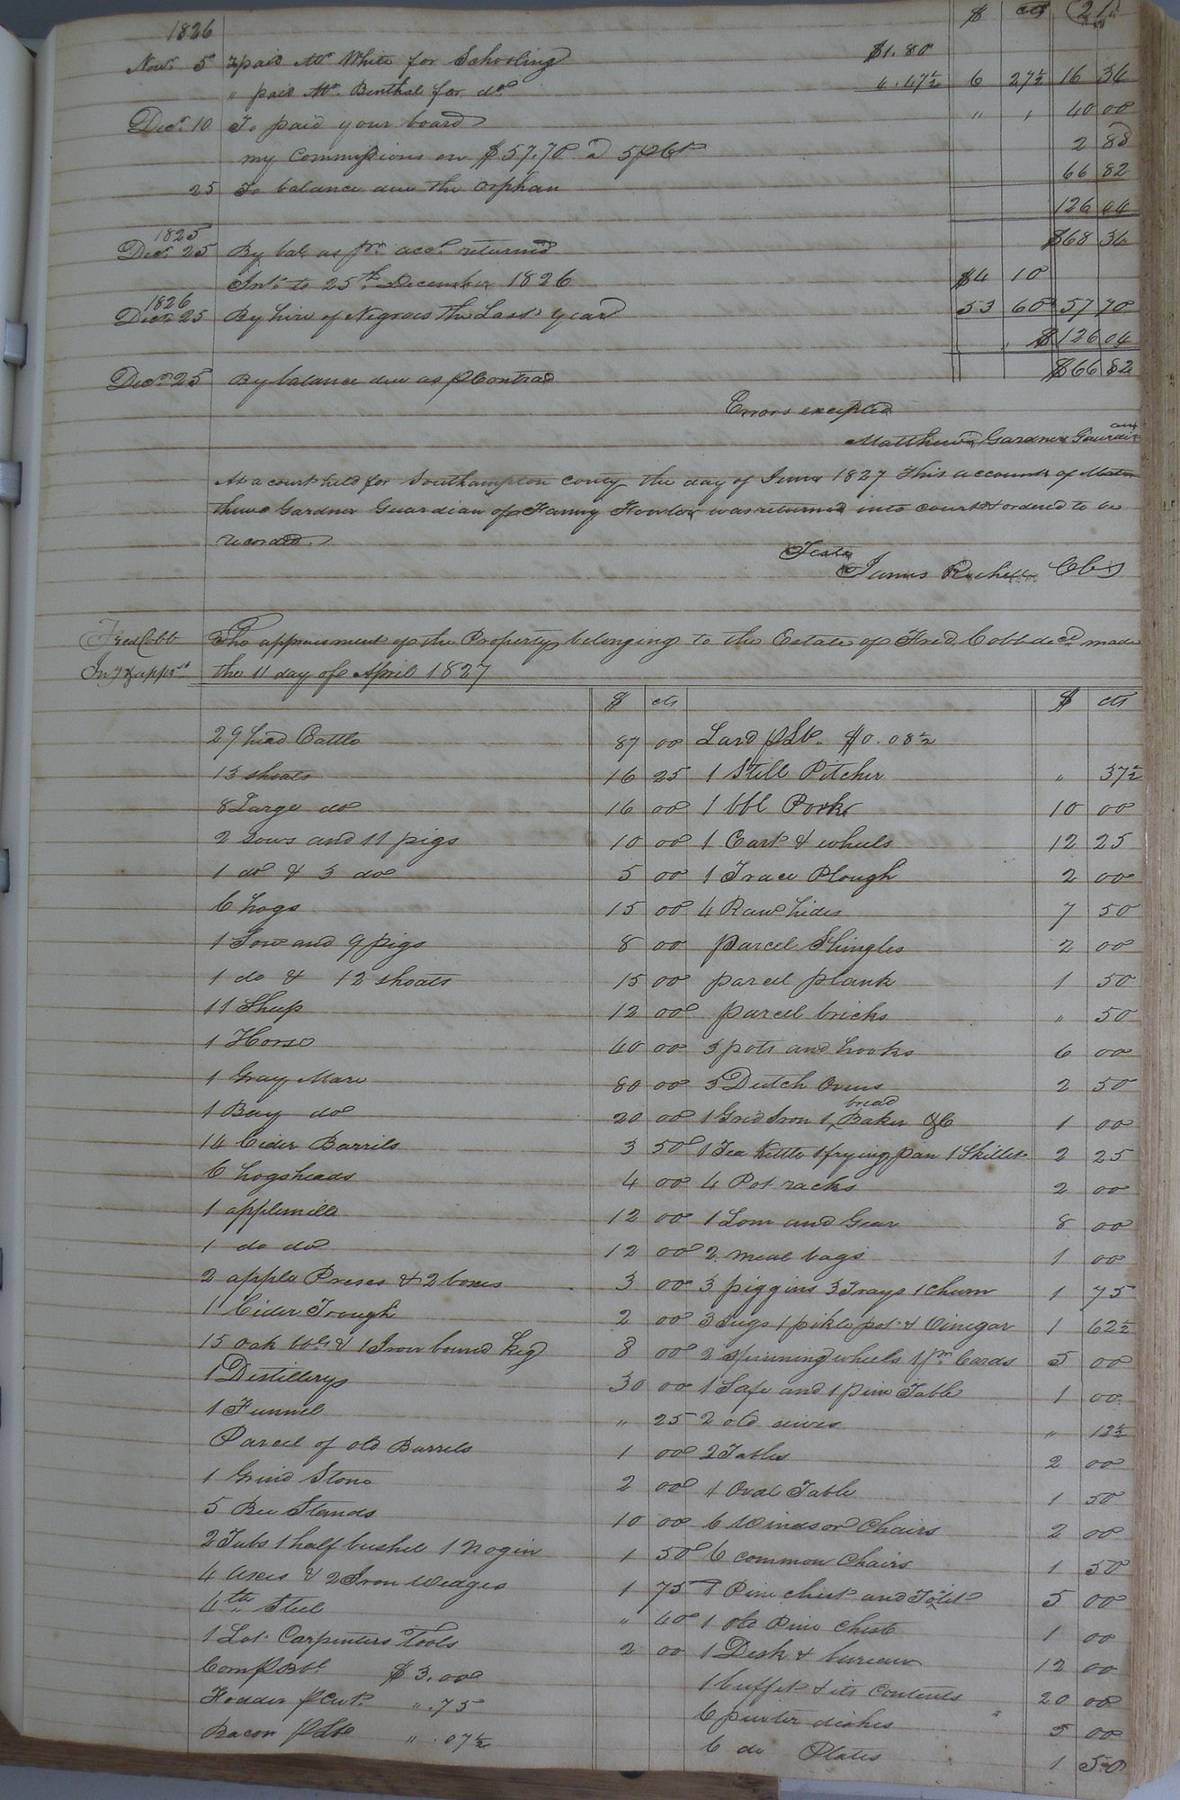 1826 $ cts
Novr 5 To paid Mr White for Schooling $1.80
" paid Mr. Benthal for do 4.47½ 6 27½ 16 34
Decr 10 To paid your board " " 40 00
my Commissions on $57.70 @ 5 pCt 2 88
25 To balance due the Orphan 66 82
126 04
1825
Decr 25 By bal as pr acct returned $68 34
Int. to 25th December 1826 $4 10
1826
Decr 25 By hire of Negroes the Last year 53 60 57 70
$126 04
Decr 25 By balance due as p Contra $66 82
Errors excepted
Matthew Gardner Gaurdian
At a court held for Southampton county the day of June 1827 This account of Mat
thew Gardner Guardian of Fanny was returned into court & ordered to be
recorded
Teste
James Rochelle Clk
Fred Cobb The appraisment of the Property belonging to the Estate of Fred Cobb decd made
Invy & apprt the 11 day of April 1827
$ cts $ cts
29 head Cattle 87 00 Lard p Lb. $0.08½
13 shoats 16 25 1 Still Pitcher " 37½
8 Large do 16 00 1 bbl Pork 10 00
2 Sows and 11 pigs 10 00 1 Cart & wheels 12 25
1 do & 3 do 5 00 1 Trace Plough 2 00
6 hogs 15 00 4 Raw hides 7 50
1 Sow and 9 pigs 8 00 parcel Shingles 2 00
1 do & 12 shoats 15 00 parcel plank 1 50
11 Sheep 12 00 parcel bricks " 50
1 Horse 40 00 3 pots and hooks 6 00
1 Gray Mare 80 00 3 Dutch Ovens 2 50
1 Bay do 20 00 1 Grid Iron 1 bread Baker &C 1 00
14 Cider Barrils 3 50 1 Tea Kettle 1 frying pan 1 Skillet 2 25
6 hogsheads 4 00 4 Pot racks 2 00
1 applemill 12 00 1 Lom and Gear 8 00
1 do do 12 00 2 meal bags 1 00
2 apple Preses & 2 boxes 3 00 3 piggins 3 Trays 1 churn 1 75
1 Cider Trough 2 00 3 Jugs 1 pikle pot & Vinegar 1 62½
15 oak bbls & 1 Iron bound Keg 8 00 2 spinning wheels 1 pr Cards 5 00
1 Distillery 30 00 1 Safe and 1 pine Table 1 00
1 Funnel " 25 2 old sieves " 12½
Parcel of old Barrels 1 00 2 Tables 2 00
1 Grind Stone 2 00 1 Oval Table 1 50
5 Bee Stands 10 00 6 Windsor Chairs 2 00
2 Tubs 1 half bushel 1 Nogin 1 50 6 common Chairs 1 50
4 Axes & 2 Iron Wedges 1 75 1 Pine chest and Toilet 5 00
4 lb Steel " 40 1 old Pine Chest 1 00
1 Lot Carpenters Tools 2 00 1 Desk & bureau 12 00
Corn p Bbl $3.00 1 buffet & its contents 20 00
Fodder p Cwt. " .75 6 pewter dishes 5 00
Bacon p Lb " .07½ 6 do Plates 1 50